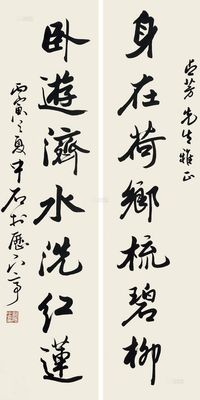 芳先生雅正
身在荷鄉梳碧柳
卧遊濟水洗红蓮
丙寅之夏中石於歷下亭